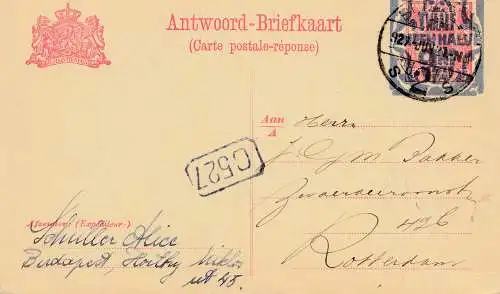 Antwoord-Briefkaart
(Carte postale-réponse)
Aan
A
Heer
J. C. J. M. Bakker
49b
Rotterdam
C527
Afzender (Expéditeur-)
Schüller Alice
Budapest, Horthy Miklos
ut 45.